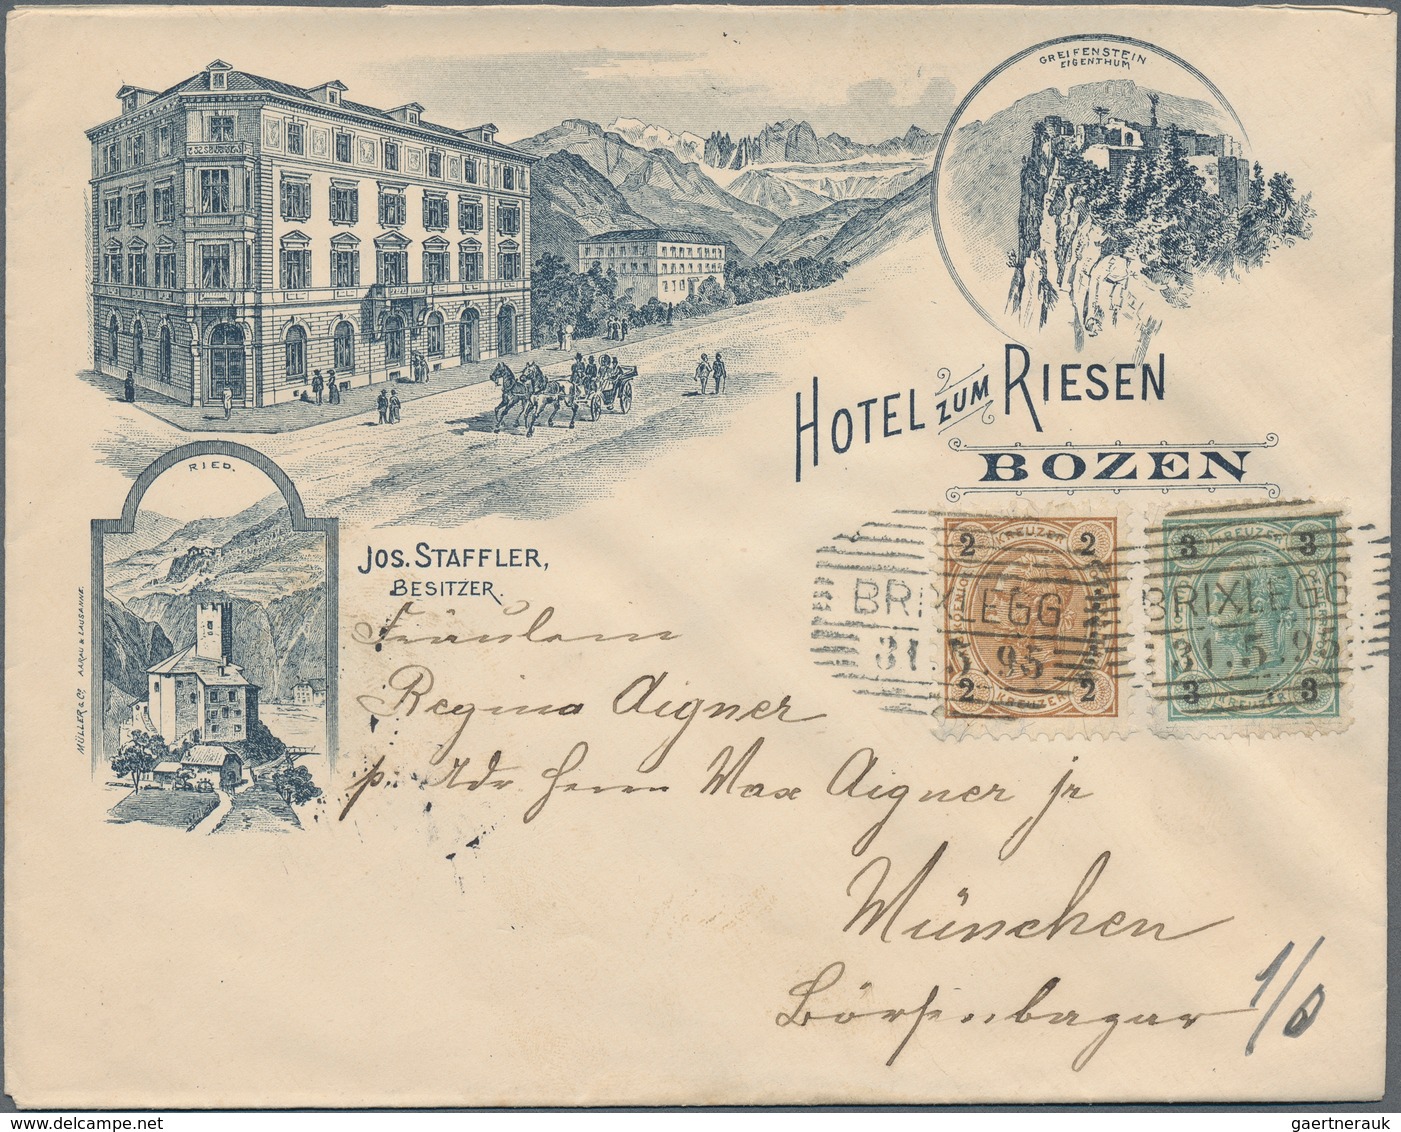 GREIFENSTEIN
EIGENTHUM
HOTEL ZUM RIESEN
BOZEN
RIED.
JOS. STAFFLER,
BESITZER.
MÜLLER & Co. AARAU & LAUSANNE.
2 KREUZER 2
2 KREUZER 2
3 KREUZER 3
3 KREUZER 3
BRIXLEGG
31.5.95
BRIXLEGG
31.5.95
Fräulein
Regina Aigner
p. Adr Herrn Max Aigner jr
München
Börsenbazar
gaertnerauk